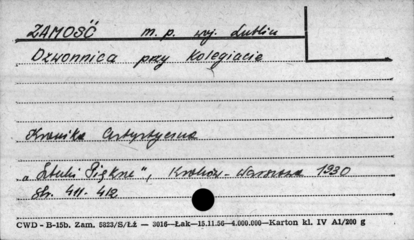 ZAMOŚĆ m. p. woj. Lublin
Dzwonnica przy Kolegiacie
Kronika Artystyczna
„Sztuki Piękne", Kraków - Warszawa 1930
Str. 411 - 412
CWD - B-15b. Zam. 5823/S/Łź — 3016—Łak—15.11.56—4.000.000—Karton kl. IV A1/200 g